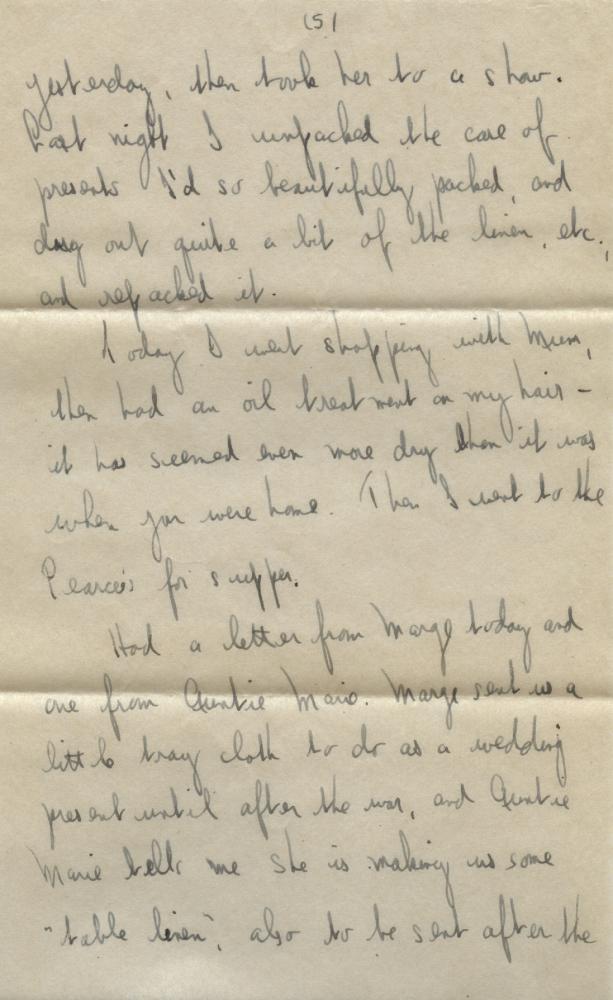 (5)
yesterday, then took her to a show.
Last night I unpacked the case of
presents I'd so beautifully packed, and
dug out quite a bit of the linen, etc.,
and repacked it.
Today I went shopping with Mum,
then had an oil treatment on my hair –
it has seemed even more dry than it was
when you were home. Then I went to the
Pearce's for supper.
Had a letter from Marge today and
one from Auntie Marie. Marge sent us a
little tray cloth to do as a wedding
present until after the war, and Auntie
Marie tells me she is making us some
"table linen", also to be sent after the